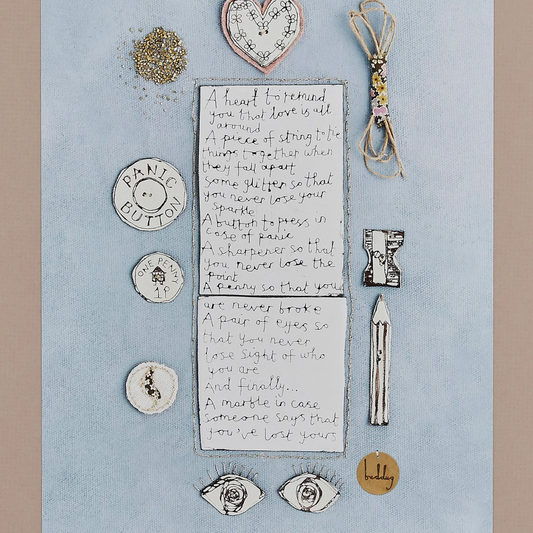 A heart to remind
you that love is all
around
A piece of string to tie
things together when
they fall apart
Some glitter so that
you never lose your
sparkle
A button to press in
case of panic
A sharpener so that
you never lose the
point
A penny so that you
are never broke
A pair of eyes so
that you never
lose sight of who
you are
And finally...
A marble in case
someone says that
you've lost yours
PANIC
BUTTON
ONE PENNY
1P